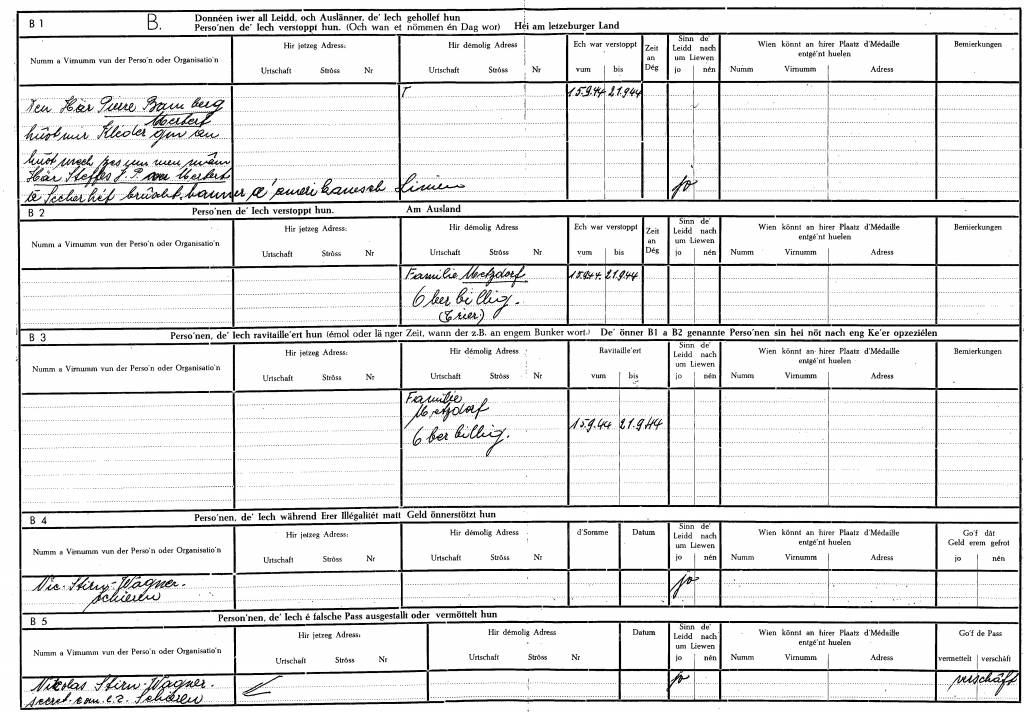 B 1 B. Donnéen iwer all Leidd, och Auslänner, de' Iech gehollef hun
Perso'nen de' Iech verstoppt hun. (Och wan et nömmen én Dag wor) Héi am letzeburger Land
Numm a Virnumm vun der Perso'n oder Organisatio'n Hir jetzeg Adress: Hir démolig Adress Ech war verstoppt Zeit an Dég Sinn de' Leidd nach um Liewen Wien könnt an hirer Plaatz d'Médaille entgé'nt huelen Bemierkungen
Urtschaft Ströss Nr Urtschaft Ströss Nr vum bis jo nén Numm Virnumm Adress
Den Här Pierre Bamberg 15.9.44 21.9.44
Mertert
huet mir Kleder gin an
huet mech
Här Steffes J. P. vu Mertert
bruecht hanner d'amerikanesch Linien jo
B 2 Perso'nen de' Iech verstoppt hun. Am Ausland
Numm a Virnumm vun der Perso'n oder Organisatio'n Hir jetzeg Adress: Hir démolig Adress Ech war verstoppt Zeit an Dég Sinn de' Leidd nach um Liewen Wien könnt an hirer Plaatz d'Médaille entgé'nt huelen
Urtschaft Ströss Nr Urtschaft Ströss Nr vum bis jo nén Numm Virnumm Adress
Familie Metzdorf 15.9.44 21.9.44
Oberbillig.
(Trier)
B 3 Perso'nen, de' Iech ravitaille'ert hun (émol oder länger Zeit, wann der z.B. an engem Bunker wort.) De' önner B1 a B2 genannte Perso'nen sin hei nöt nach eng Ke'er opzeziélen
Numm a Virnumm vun der Perso'n oder Organisatio'n Hir jetzeg Adress: Hir démolig Adress Ravitaille'ert Sinn de' Leidd nach um Liewen Wien könnt an hirer Plaatz d'Médaille entgé'nt huelen Bemierkungen
Urtschaft Ströss Nr Urtschaft Ströss Nr vum bis jo nén Numm Virnumm Adress
Familie
Metzdorf
Oberbillig. 15.9.44 21.9.44
B 4 Perso'nen, de' Iech während Erer Illégalitét matt Geld önnerstötzt hun
Numm a Virnumm vun der Perso'n oder Organisatio'n Hir jetzeg Adress: Hir démolig Adress d'Somme Datum Sinn de' Leidd nach um Liewen Wien könnt an hirer Plaatz d'Médaille entgé'nt huelen Go'f dât Geld erem gefrot
Urtschaft Ströss Nr Urtschaft Ströss Nr jo nén Numm Virnumm Adress jo nén
Nic. Stirn-Wagner. jo
Schieren
B 5 Perso'nen, de' Iech é falsche Pass ausgestallt oder vermöttelt hun
Numm a Virnumm vun der Perso'n oder Organisatio'n Hir jetzeg Adress: Hir démolig Adress Datum Sinn de' Leidd nach um Liewen Wien könnt an hirer Plaatz d'Médaille entgé'nt huelen Go'f de Pass
Urtschaft Ströss Nr Urtschaft Ströss Nr jo nén Numm Virnumm Adress vermettelt verschâft
Nicolas Stirn-Wagner. jo verschâft
secret. com. e.r. Schieren